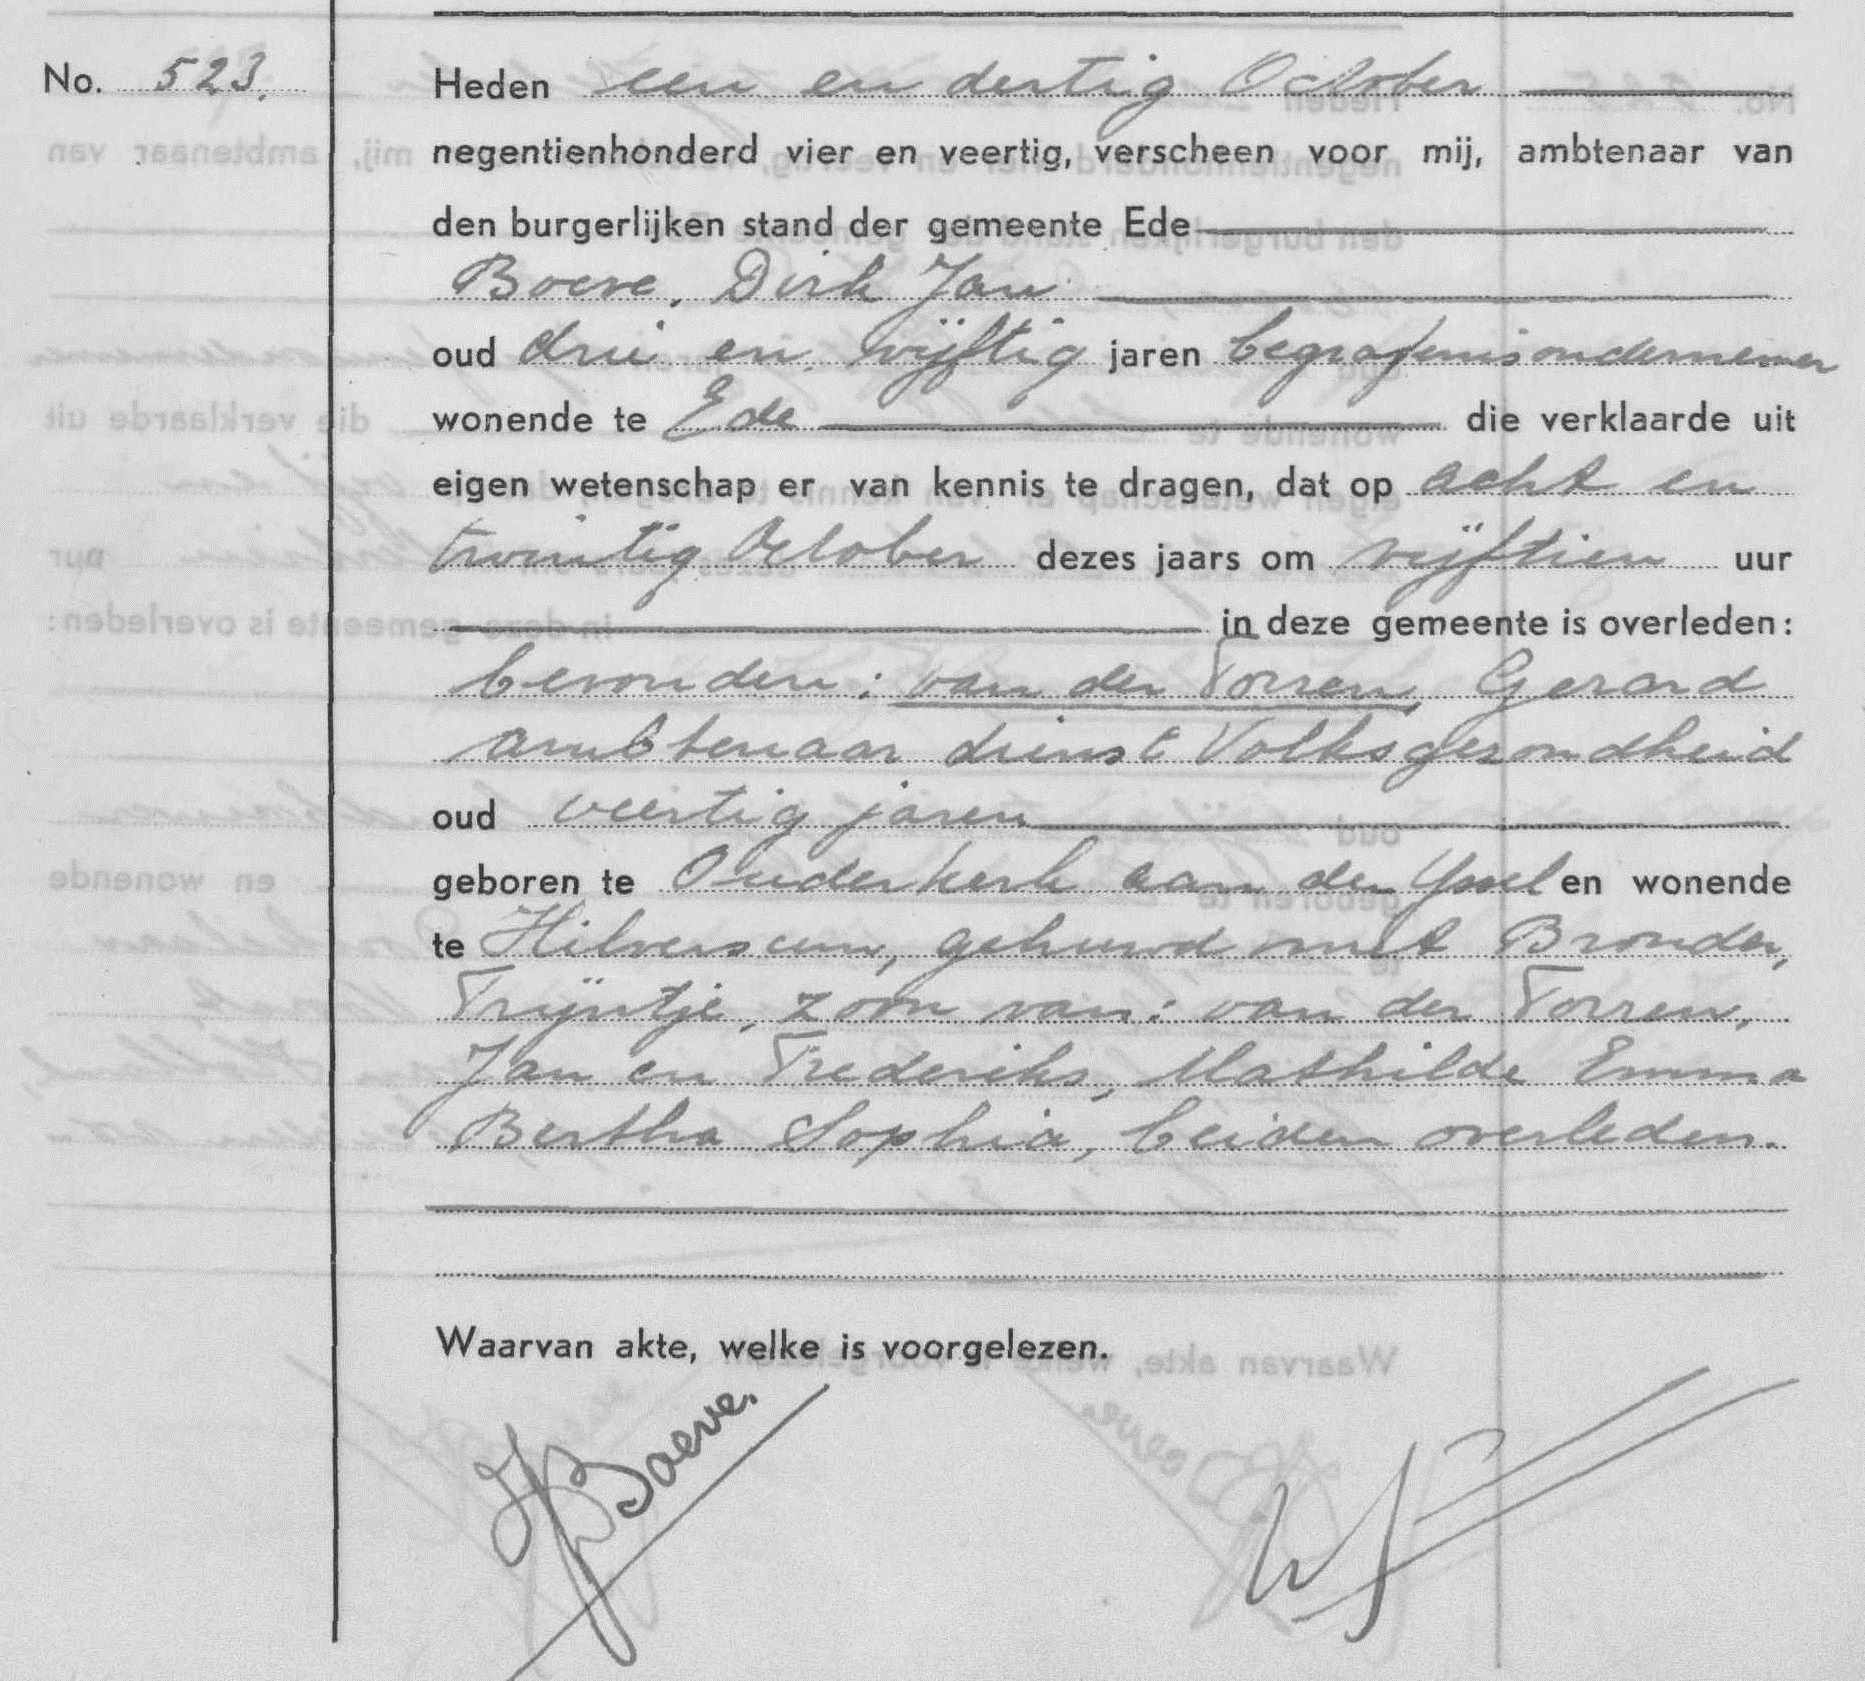 No. 523.
Heden een en dertig October
negentienhonderd vier en veertig, verscheen voor mij, ambtenaar van
den burgerlijken stand der gemeente Ede
Boeve, Dirk Jan
oud drie en vijftig jaren begrafenisondernemer
wonende te Ede die verklaarde uit
eigen wetenschap er van kennis te dragen, dat op acht en
twintig October dezes jaars om vijftien uur
in deze gemeente is overleden:
bevonden: van der Torren, Gerard
ambtenaar dienst Volksgezondheid
oud veertig jaren
geboren te Ouderkerk aan den Yssel en wonende
te Hilversum, gehuwd met Bronder,
Trijntje, zoon van: van der Torren,
Jan en Frederiks, Mathilde Emma
Bertha Sophia, beiden overleden.
Waarvan akte, welke is voorgelezen.
Boeve.